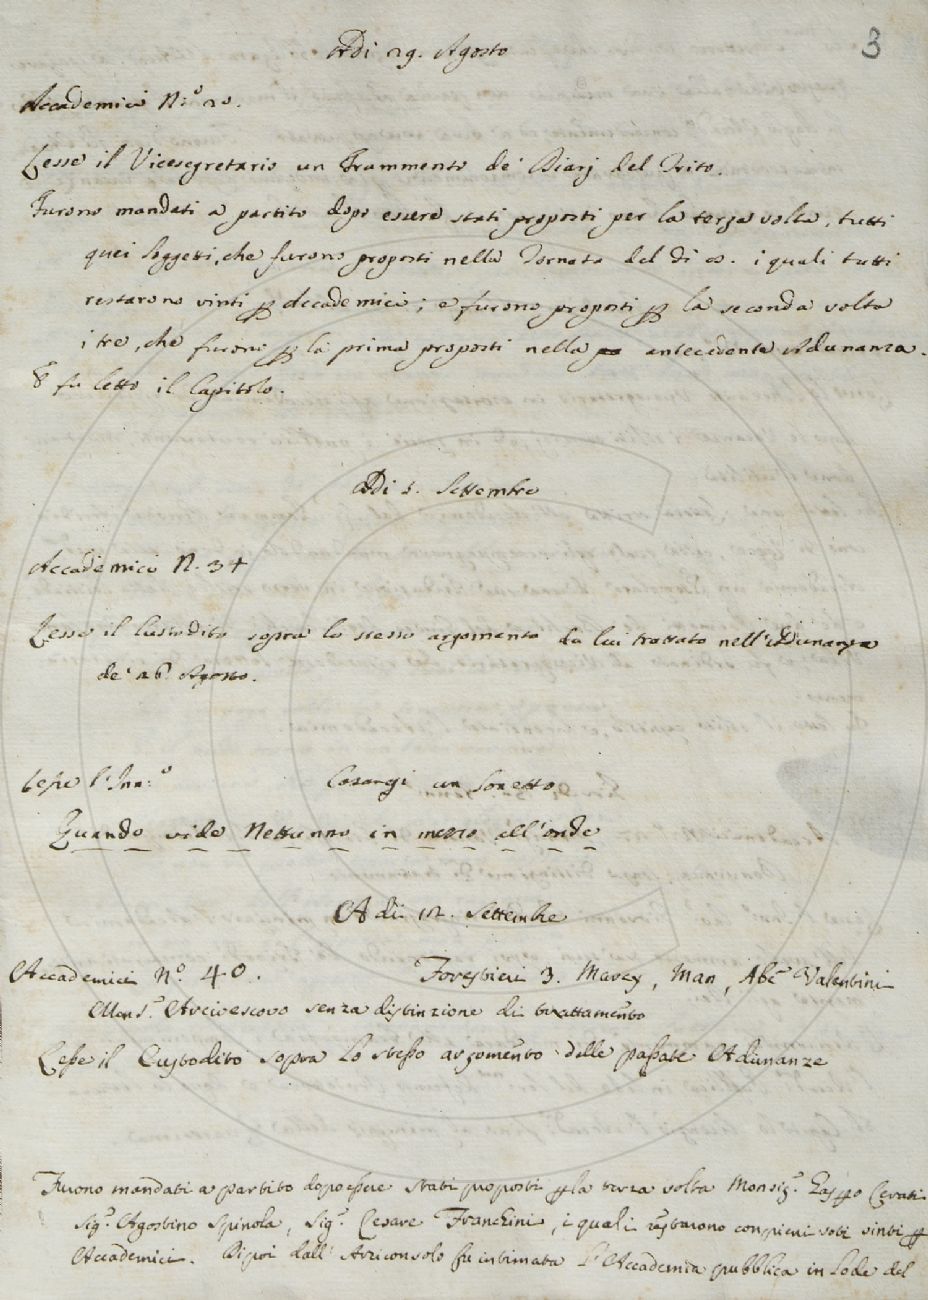 3
Adi 29. Agosto
Accademici N.º 20.
Lesse il Vicesegretario un Frammento de' Diarj del Trito.
Furono mandati a partito dopo essere stati proposti per la terza volta, tutti
quei soggetti, che furono proposti nella Tornata del di 8. i quali tutti
restarono vinti p Accademici; e furono proposti p la seconda volta
i tre, che furono p la prima proposti nella antecedente Adunanza.
E fu letto il Capitolo.
Adi 5. Settembre
Accademici N. 34
Lesse il Custodito sopra lo stesso argomento da lui trattato nell'Adunanza
de' 26 Agosto.
Lesse l'Inn:º Casaregi un Sonetto
Quando vide Nettunno in mezzo all'onde
Adi 12. Settembre
Accademici Nº. 40. Forestieri 3. Marcy, Man, Abe Valentini
Mons.r Arcivescovo senza distinzione di trattamento
Lesse il Custodito sopra lo stesso argomento delle passate Adunanze
Furono mandati a partito dopo essere stati proposti p la terza volta Monsig.r Gasp.o Cerati
Sig.r Agostino Spinola, Sig.r Cesare Franchini, i quali restarono con pieni voti vinti p
Accademici. Dipoi dall'Arciconsolo fu intimata l'Accademia pubblica in Lode del